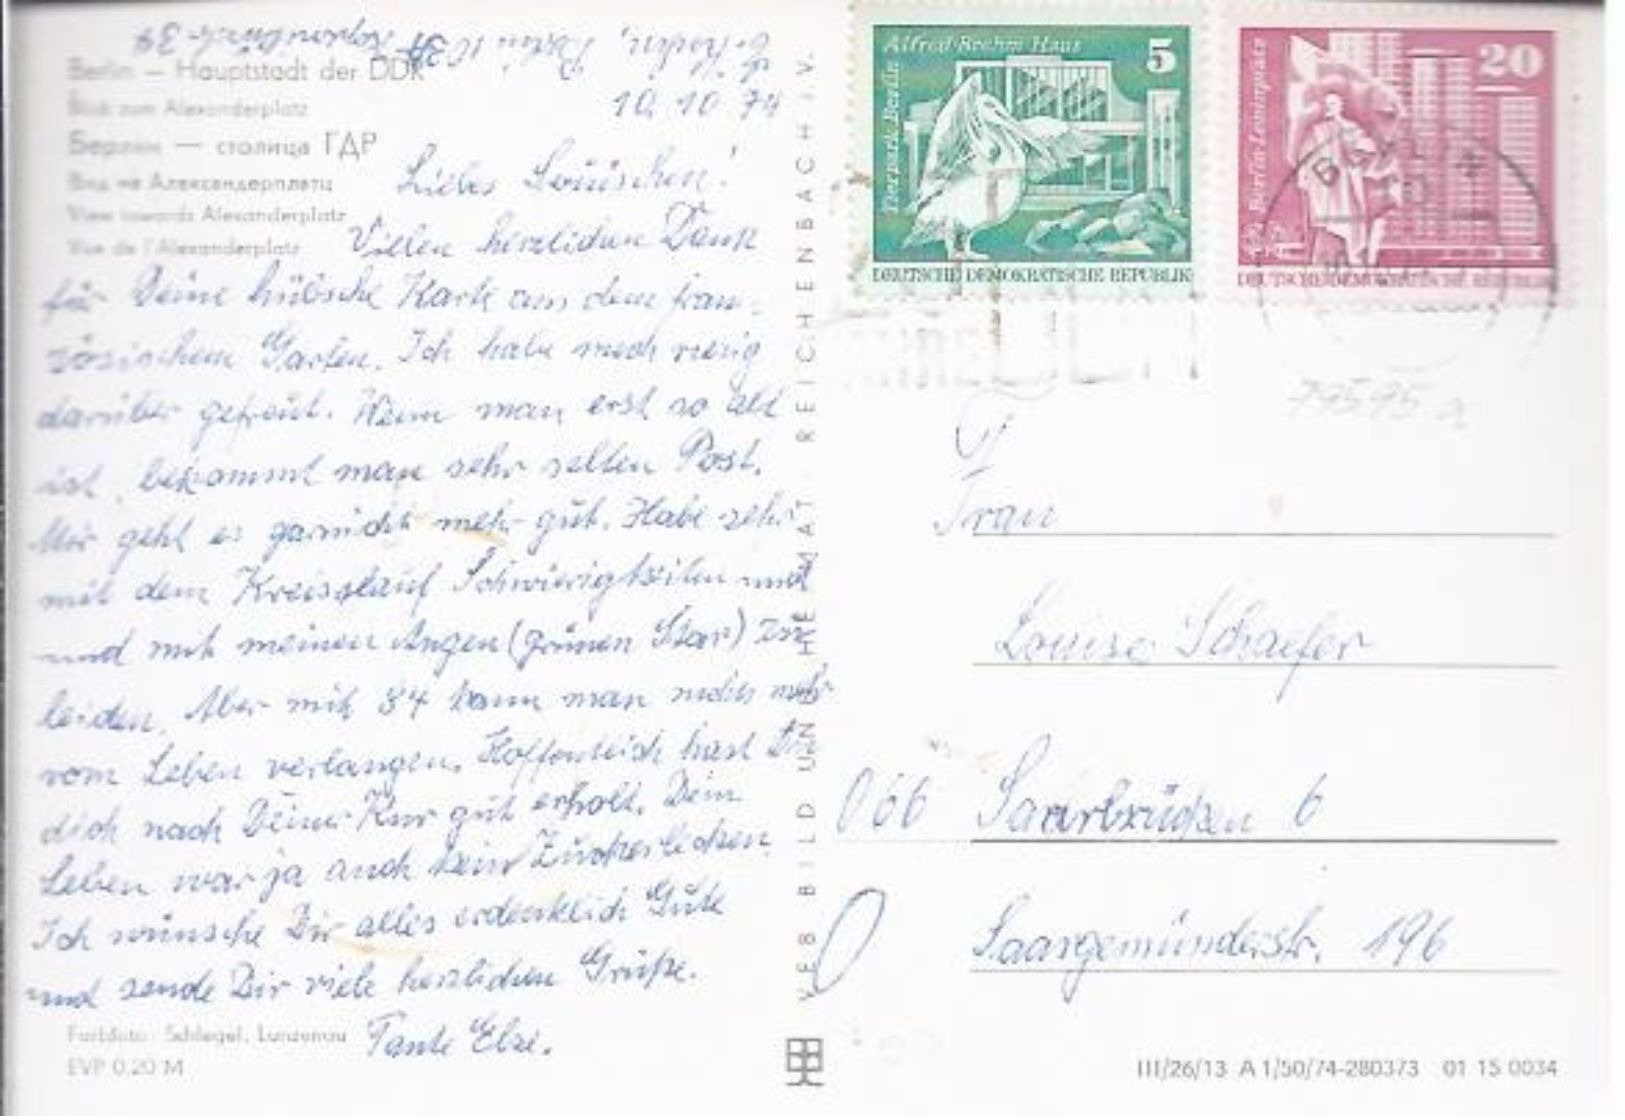 Berlin – Hauptstadt der DDR
Blick zum Alexanderplatz
Берлин — столица ГДР
Вид на Александерплатц
View towards Alexanderplatz
Vue de l'Alexanderplatz
Berlin 1034
39
10. 10. 74
Liebes Louischen!
Vielen herzlichen Dank
für Deine hübsche Karte aus dem fran-
zösischem Garten. Ich habe mich riesig
darüber gefreut. Wenn man erst so alt
ist, bekommt man sehr selten Post.
Mir geht es garnicht mehr gut. Habe sehr
mit dem Kreisslauf Schwierigkeiten und
und mit meinen Augen (grünen Star) zu
leiden. Aber mit 84 kann man nichts mehr
vom Leben verlangen. Hoffentlich hast Du
dich nach Deiner Kur gut erholt. Dein
Leben war ja auch kein Zuckerlecken.
Ich wünsche Dir alles erdenklich Gute
und sende Dir viele herzlichen Grüße.
Tante Else.
Farbfoto: Schlegel, Lunzenau
EVP 0,20 M
VEB BILD UND HEIMAT · REICHENBACH I. V.
Alfred-Brehm-Haus
5
Tierpark Berlin
DEUTSCHE DEMOKRATISCHE REPUBLIK
20
Berlin Leninplatz
DEUTSCHE DEMOKRATISCHE REPUBLIK
BERLIN
79595 a
Frau
Louise Schaefer
066 Saarbrücken 6
Saargemünderstr. 196
III/26/13 A 1/50/74-280373 01 15 0034